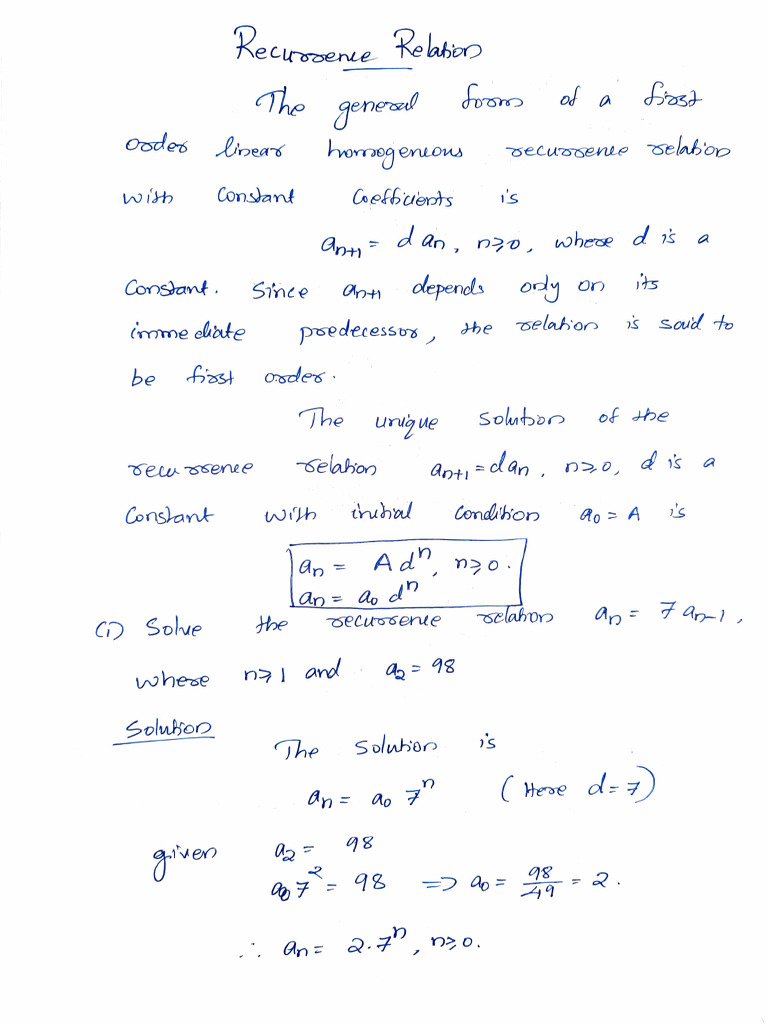 Recurrence Relation
The general form of a first
order linear homogeneous recurrence relation
with Constant Coefficients is
aₙ₊₁ = d aₙ, n≥0, where d is a
Constant. Since aₙ₊₁ depends only on its
immediate predecessor, the relation is said to
be first order.
The unique solution of the
recurrence relation aₙ₊₁ = daₙ, n≥0, d is a
Constant with initial condition a₀ = A is
aₙ = A dⁿ, n≥0.
aₙ = a₀ dⁿ
(i) Solve the recurrence relation aₙ = 7 aₙ₋₁,
where n≥1 and a₂ = 98
Solution
The solution is
aₙ = a₀ 7ⁿ (Here d=7)
given a₂ = 98
a₀ 7² = 98 ⇒ a₀ = 98/49 = 2.
∴ aₙ = 2.7ⁿ, n≥0.